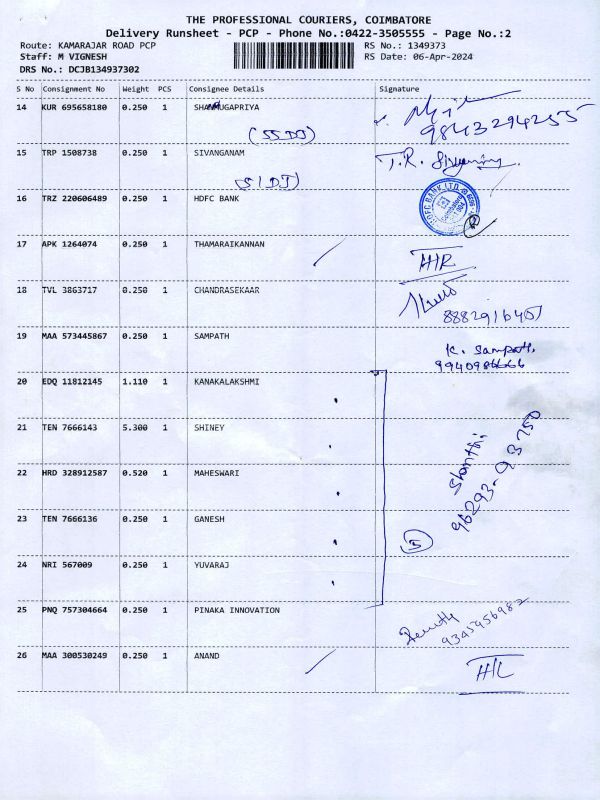 THE PROFESSIONAL COURIERS, COIMBATORE
Delivery Runsheet - PCP - Phone No.:0422-3505555 - Page No.:2
Route: KAMARAJAR ROAD PCP RS No.: 1349373
Staff: M VIGNESH RS Date: 06-Apr-2024
DRS No.: DCJB134937302
S No Consignment No Weight PCS Consignee Details Signature
14 KUR 695658180 0.250 1 SHANMUGAPRIYA
9843294255
15 TRP 1508738 0.250 1 SIVANGANAM T.R.
16 TRZ 220606489 0.250 1 HDFC BANK
17 APK 1264074 0.250 1 THAMARAIKANNAN
18 TVL 3863717 0.250 1 CHANDRASEKAAR
19 MAA 573445867 0.250 1 SAMPATH K. Sampath.
20 EDQ 11812145 1.110 1 KANAKALAKSHMI
21 TEN 7666143 5.300 1 SHINEY
Shanthi
96293-93750
22 HRD 328912587 0.520 1 MAHESWARI
23 TEN 7666136 0.250 1 GANESH
5
24 NRI 567009 0.250 1 YUVARAJ
25 PNQ 757304664 0.250 1 PINAKA INNOVATION
26 MAA 300530249 0.250 1 ANAND